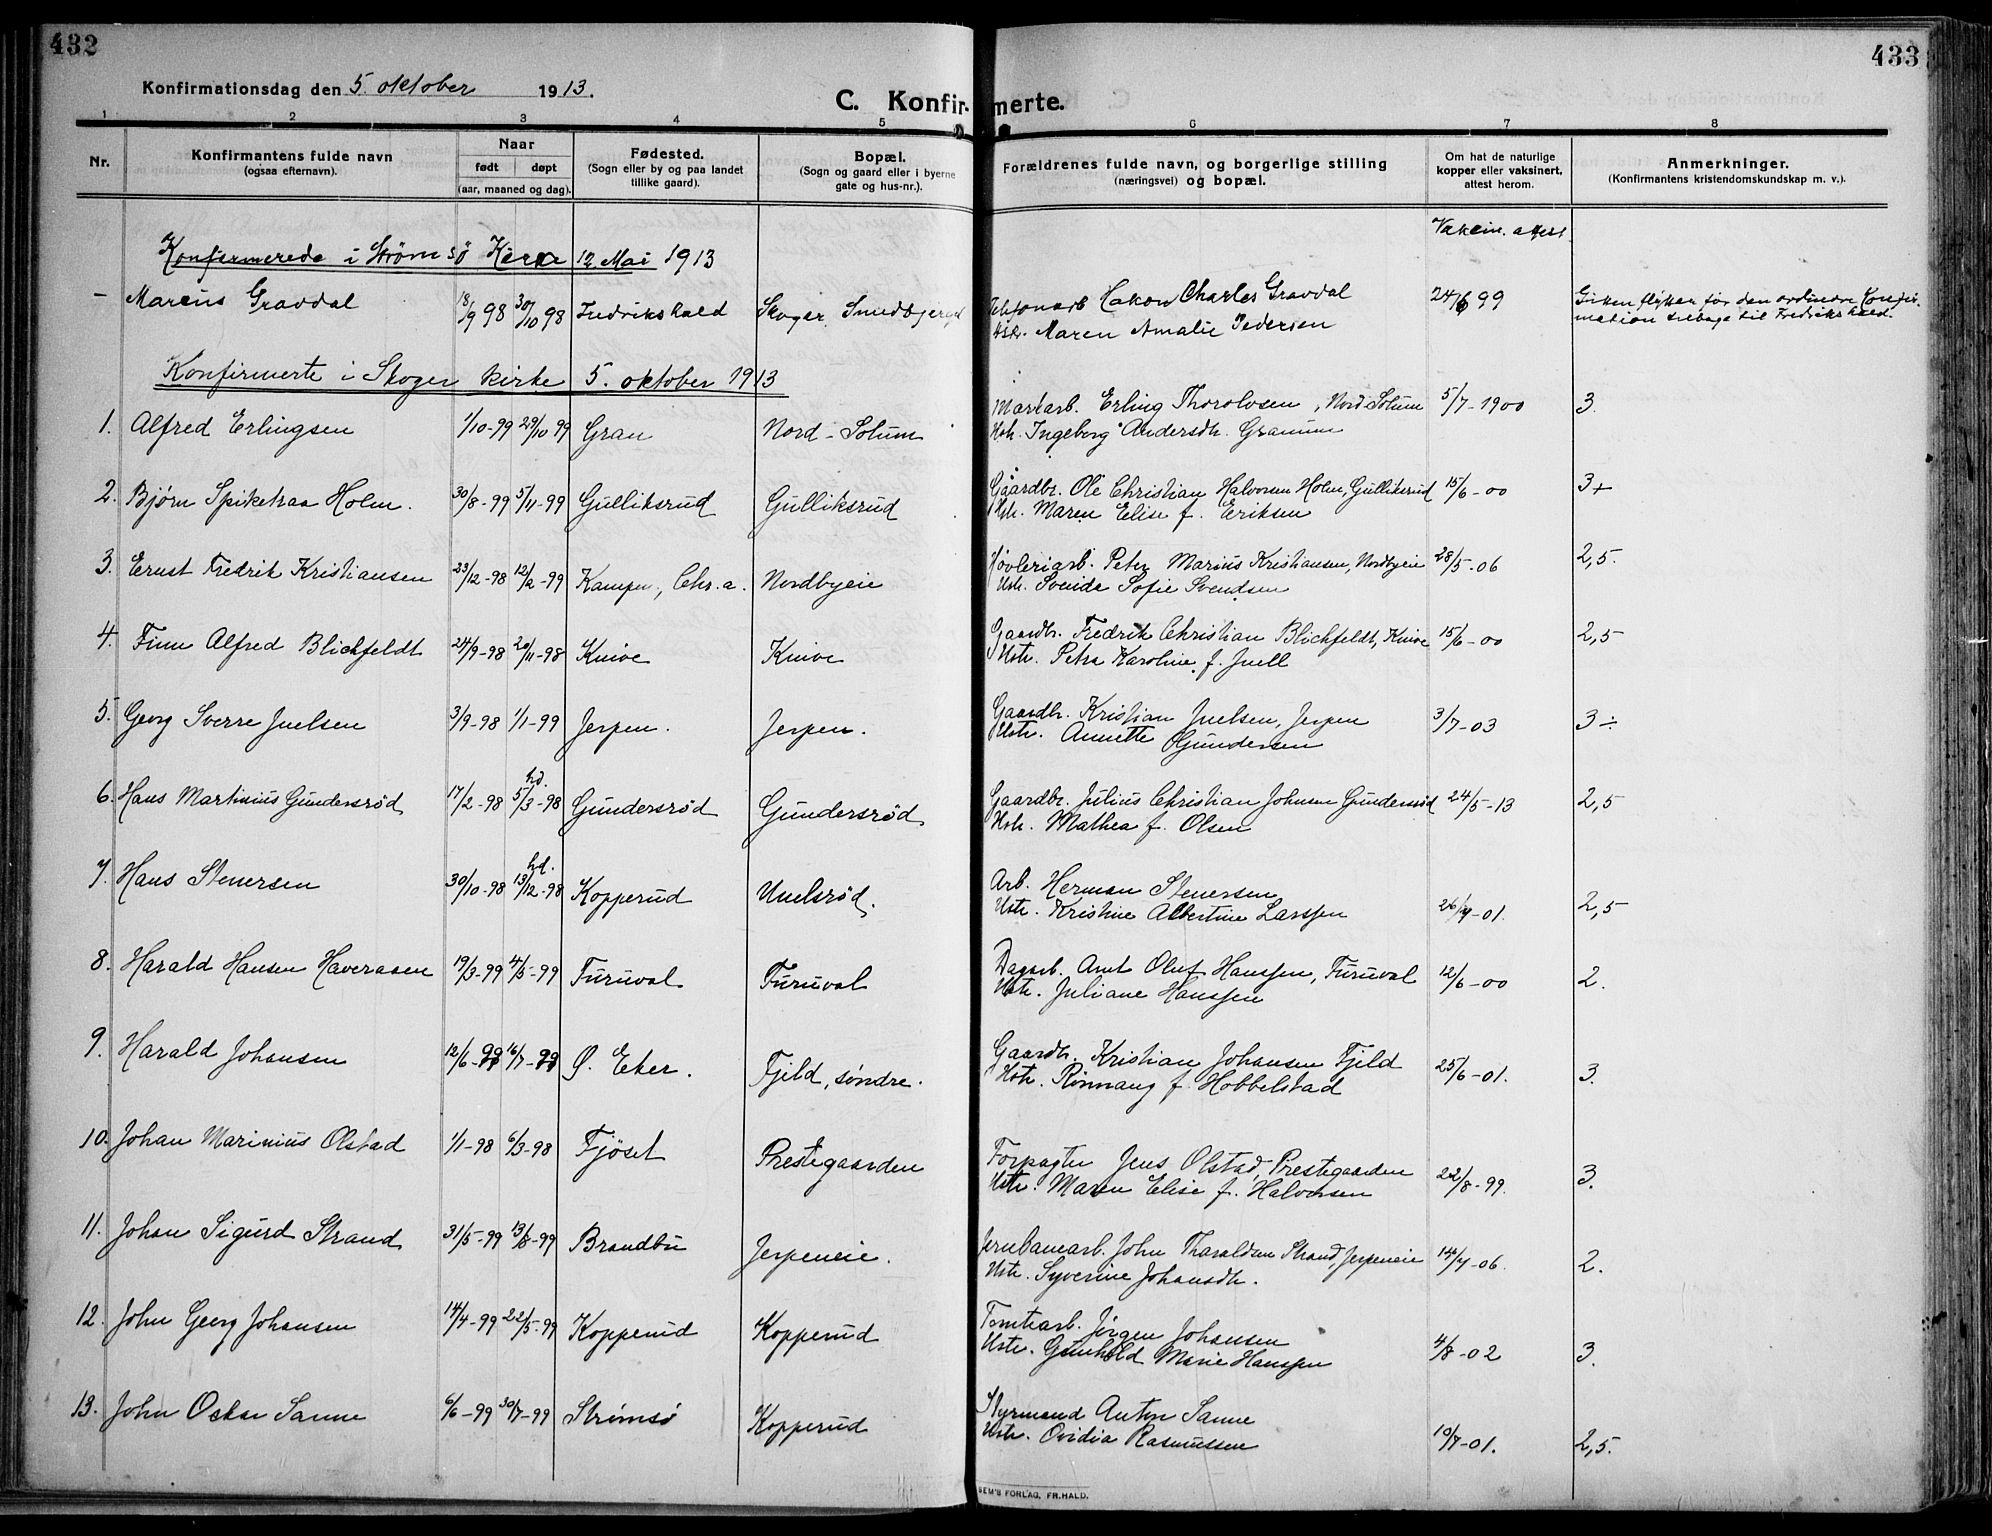 432
433
Konfirmationsdag den 5. oktober 1913.
C. Konfirmerte.
1 2 3 4 5 6 7 8
Nr.
Konfirmantens fulde navn
(ogsaa efternavn).
Naar
født døpt
(aar, maaned og dag).
Fødested.
(Sogn eller by og paa landet
tillike gaard).
Bopæl.
(Sogn og gaard eller i byerne
gate og hus-nr.).
Forældrenes fulde navn, og borgerlige stilling
(næringsvei) og bopæl.
Om hat de naturlige
kopper eller vaksinert,
attest herom.
Anmerkninger.
(Konfirmantens kristendomskundskap m. v.).
Vakcin. attest
Konfirmerede i Strømsö Kirke 12. Mai 1913
– Marius Gravdal 18/9 98 30/10 98 Fredrikshald Skoger
Telefonarb Hakon Charles Gravdal 24/6 99
Hstr. Maren Amalie Pedersen
Gutten flytter før den ordinære Konfir-
mation tilbage til Fredrikshald.
Konfirmerte i Skoger kirke 5. oktober 1913
1. Alfred Erlingsen 1/10-99 29/10 99 Gran Nord-Solum
Erling Thorolvsen, Nord Solum 5/7-1900 3.
Hstr. Ingeborg Andersdtr. Granum
2. Bjørn Spiketraa Holm. 30/8-99 5/11-99 Gulliksrud Gulliksrud
Gaardbr. Ole Christian Halvorsen Holm, Gulliksrud 15/6-00 3+
Hstr. Maren Elise f. Eriksen
3. Ernst Fredrik Kristiansen 23/12-98 12/2-99 Kampen, Chr.a. Nordbyeie
Høvleriarb. Peter Marius Kristiansen, Nordbyeie 28/5-06 2,5.
Hstr. Svende Sofie Svendsen
4. Finn Alfred Blichfeldt 24/9-98 20/11-98 Knive Knive
Gaardbr. Fredrik Christian Blichfeldt, Knive 15/6-00 2,5
Hstr. Petra Karoline f. Juell
5. Georg Sverre Juelsen 3/9-98 1/1-99 Jerpen. Jerpen.
Gaardbr. Kristian Juelsen, Jerpen 3/7-03 3÷
Hstr. Annette Gundersen
6. Hans Martinius Gundersrød 17/2-98 hd. 5/3-98 Gundersrød Gundersrød
Gaardbr. Julius Christian Johnsen Gundersrød 24/5-13 2,5
Hstr. Mathea f. Olsen
7. Hans Stenersen 30/10-98 hd. 13/12-98 Kopperud Unelsrød.
Arb. Herman Stenersen
Hstr. Kristine Albertine Larssen 26/4-01. 2,5
8. Harald Hansen Haveraaen 19/3-99 4/5-99 Furuval Furuval
Dagarb. Arnt Oluf Hanssen, Furuval 12/6-00 2.
Hstr. Juliane Hanssen
9. Harald Johansen 12/6-99 16/7-99 Ø. Eker. Fjeld, søndre.
Gaardbr. Kristian Johansen Fjeld 25/6-01. 3.
Hstr. Rønnaug f. Hobbelstad
10. Johan Marinius Olstad 1/1-98 6/3-98 Fjøset Prestegaarden
Forpagter Jens Olstad, Prestegaarden 22/8-99. 3.
Hstr. Maren Elise f. Halvorsen
11. Johan Sigurd Strand 31/5-99 13/8-99 Brandbu Jerpeneie.
Jernbanearb. John Tharaldsen Strand, Jerpeneie 14/4-06. 2.
Hstr. Syverine Johansdtr.
12. John Georg Johansen 14/4-99 22/5-99 Kopperud Kopperud
Tomtearb. Jørgen Johansen
Hstr. Gunhild Marie Hanssen 4/8-02 3.
13. John Oskar Sanne 6/6-99 30/7-99 Strømsø Kopperud
Styrmand Anton Sanne
Hstr. Ovidia Rasmussen 10/7-01. 2,5.
SEM'S FORLAG, FR.HALD.